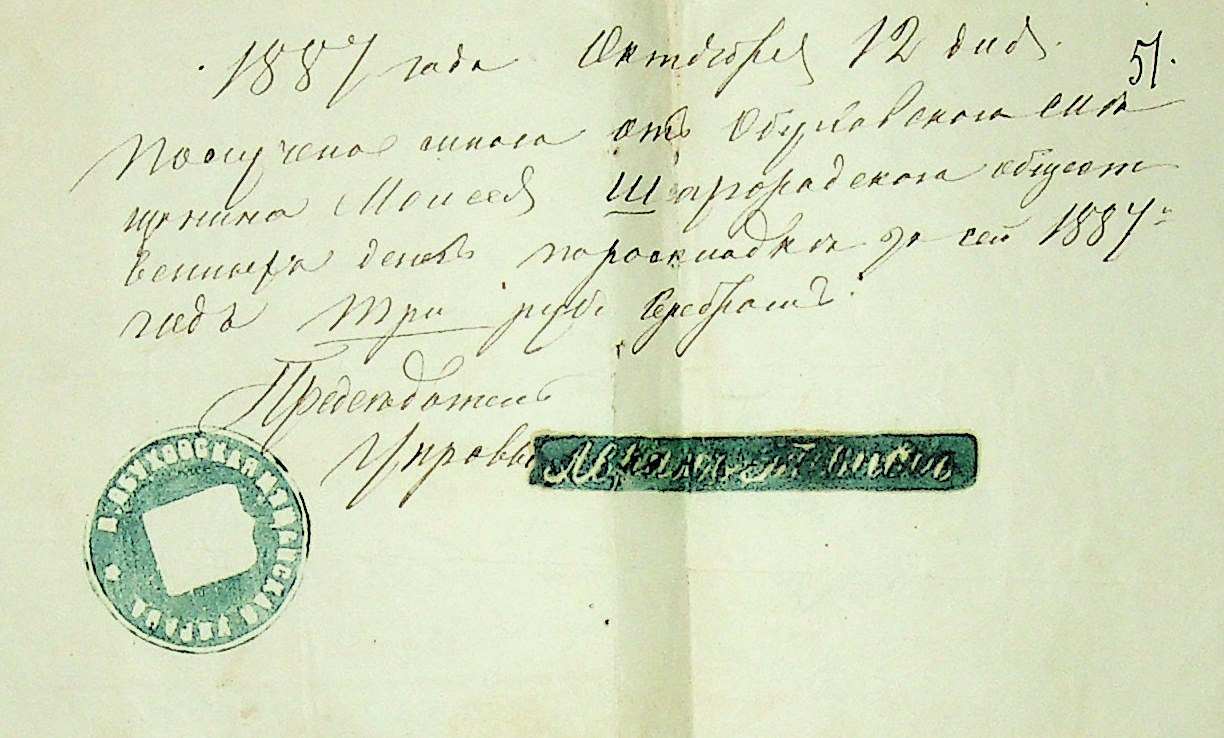 1887 года Октября 12 дня.
51.
Получено мною отъ Обуховского мѣ
щанина Моисея Шаргородского обществ
венныхъ денегъ пораскладки за сей 1887-
годъ три руб. серебромъ.
Предсѣдатель
Управы
ОБУХОВСКАЯ МѢЩАНСКАЯ УПРАВА